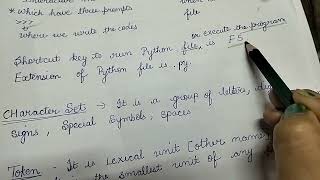 * which have three prompts
>>>
where we write the codes
file
or execute the program
Shortcut key to run Python file, is F5
Extension of Python file is .py.
CHaracter Set :- It is a group of letters,
signs, Special Symbols, spaces
Token - It is Lexical unit [other name
is the smallest unit of any